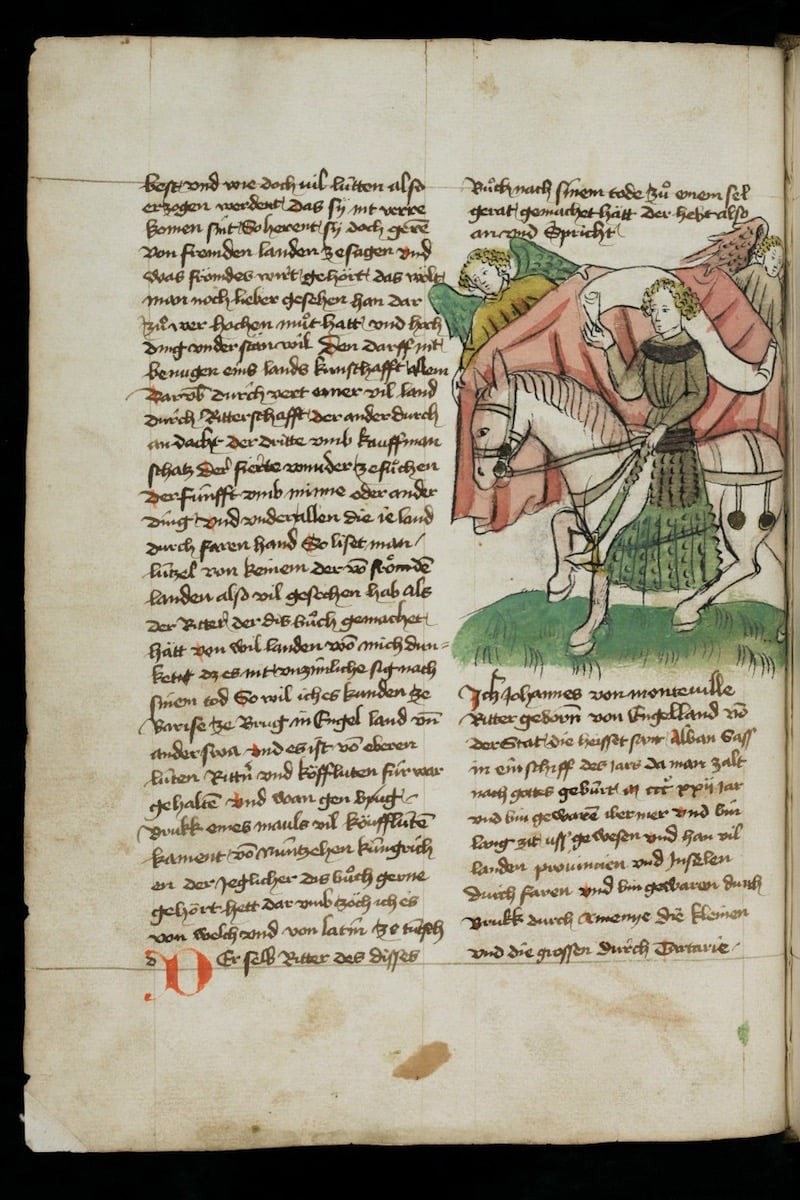 best vnd wie doch vil lütten also
erzogen werdent Das sy nit verre
komen sint So herent sy doch gere
von fremden landen ze sagen vnd
was frömdes wirt gehört das wölt
man noch lieber gesehen han Dar
zů wer hochen můt hatt vnd hoch
ding vnder stan wil Den darff nit
benugen eins lands kuntschafft allein
Darvmb durch vert einer vil land
durch Ritterschafft der ander durch
andacht der dritte vmb kauffman
schatz Der fierte wunder ze sůchen
Der fünfft vmb minne oder ander
ding vnd vnder allen die ie land
durch faren hand So liset man
lützel von keinem der võ frömdẽ
landen also vil gesechen hab als
der Ritter der dis bůch gemachet
hätt von wil landen võ mich dun
ket dz es nit vnzimliche sig nach
sinem tod So wil ich es kunden ze
Parise ze Brug in Engel land vñ
anderswa vnd es ist võ eberen
lüten Rittern vnd köfflüten für war
gehaltẽ vnd wan gen brug
kament võ nüntzehen küngrich
en der Jeglicher dis bůch gerne
gehört hett dar vmb zöch ich es
von welch vnd von latin ze tütsch
D Er selb Ritter des disses
Bůch nach sinem tode zů einem sel
gerät gemachet hätt Der hebt also
an vnd Spricht
Ich Johannes von monteuille
Ritter geborn von Engelland võ
der Stat die heisset sant Alban Saß
in ein schiff des iars da man zalt
nach gottes gebürt m ccc xxij iar
vnd bin gewarẽ über mer vnd bin
lang zit uss gewesen vnd han vil
landen prouincien vnd Inselen
durch faren vnd bin gewaren durch
durch Armenye die kleinen
vnd die grossen durch Tartarie